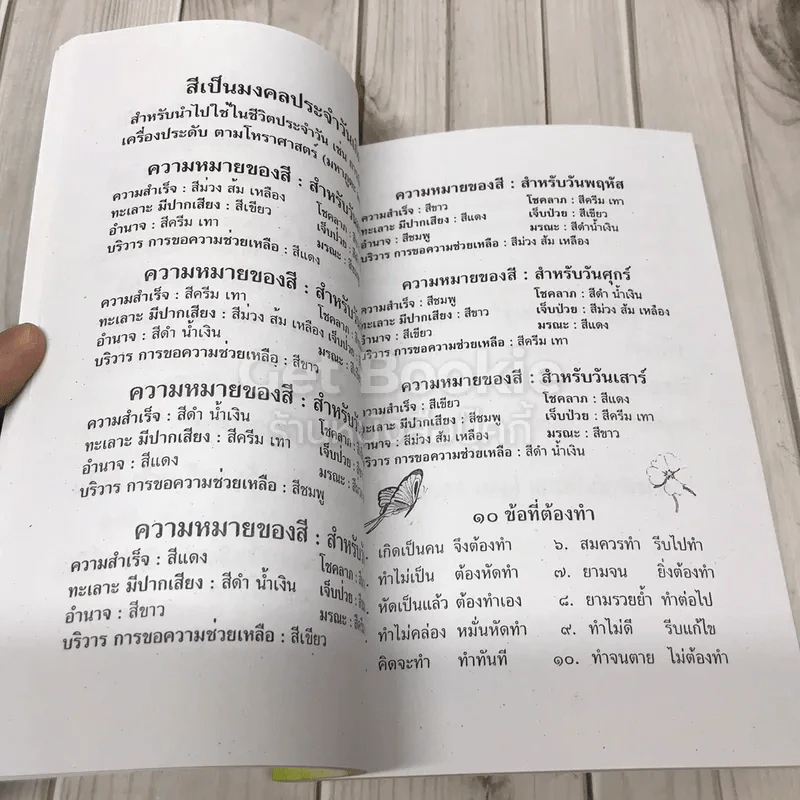 สีเป็นมงคลประจำวัน
สำหรับนำไปใช้ในชีวิตประจำวัน เช่น
เครื่องประดับ ตามโหราศาสตร์
ความหมายของสี : สำหรับวัน
ความสำเร็จ : สีม่วง ส้ม เหลือง โชคลาภ :
ทะเลาะ มีปากเสียง : สีเขียว เจ็บป่วย :
อำนาจ : สีครีม เทา มรณะ :
บริวาร การขอความช่วยเหลือ : สีแดง
ความหมายของสี : สำหรับวัน
ความสำเร็จ : สีครีม เทา โชคลาภ :
ทะเลาะ มีปากเสียง : สีม่วง ส้ม เหลือง เจ็บป่วย :
อำนาจ : สีดำ น้ำเงิน มรณะ :
บริวาร การขอความช่วยเหลือ : สีขาว
ความหมายของสี : สำหรับวัน
ความสำเร็จ : สีดำ น้ำเงิน โชคลาภ :
ทะเลาะ มีปากเสียง : สีครีม เทา เจ็บป่วย :
อำนาจ : สีแดง มรณะ :
บริวาร การขอความช่วยเหลือ : สีชมพู
ความหมายของสี : สำหรับวัน
ความสำเร็จ : สีแดง โชคลาภ :
ทะเลาะ มีปากเสียง : สีดำ น้ำเงิน เจ็บป่วย :
อำนาจ : สีขาว มรณะ :
บริวาร การขอความช่วยเหลือ : สีเขียว
ความหมายของสี : สำหรับวันพฤหัส
ความสำเร็จ : สีขาว โชคลาภ : สีครีม เทา
ทะเลาะ มีปากเสียง : สีแดง เจ็บป่วย : สีเขียว
อำนาจ : สีชมพู มรณะ : สีดำน้ำเงิน
บริวาร การขอความช่วยเหลือ : สีม่วง ส้ม เหลือง
ความหมายของสี : สำหรับวันศุกร์
ความสำเร็จ : สีชมพู โชคลาภ : สีดำ น้ำเงิน
ทะเลาะ มีปากเสียง : สีขาว เจ็บป่วย : สีม่วง ส้ม เหลือง
อำนาจ : สีเขียว มรณะ : สีแดง
บริวาร การขอความช่วยเหลือ : สีครีม เทา
Get Bookie
ความหมายของสี : สำหรับวันเสาร์
ความสำเร็จ : สีเขียว โชคลาภ : สีแดง
ทะเลาะ มีปากเสียง : สีชมพู เจ็บป่วย : สีครีม เทา
อำนาจ : สีม่วง ส้ม เหลือง มรณะ : สีขาว
บริวาร การขอความช่วยเหลือ : สีดำ น้ำเงิน
๑๐ ข้อที่ต้องทำ
เกิดเป็นคน จึงต้องทำ ๖. สมควรทำ รีบไปทำ
ทำไม่เป็น ต้องหัดทำ ๗. ยามจน ยิ่งต้องทำ
หัดเป็นแล้ว ต้องทำเอง ๘. ยามรวยย้ำ ทำต่อไป
ทำไม่คล่อง หมั่นหัดทำ ๙. ทำไม่ดี รีบแก้ไข
คิดจะทำ ทำทันที ๑๐. ทำจนตาย ไม่ต้องทำ